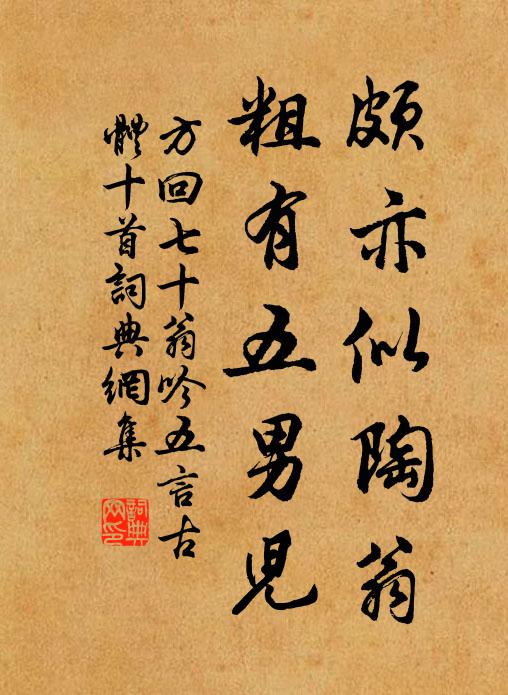 頗亦似陶翁
粗有五男児
方回七十翁吟五言古
體十首詞典網集
詞典网印